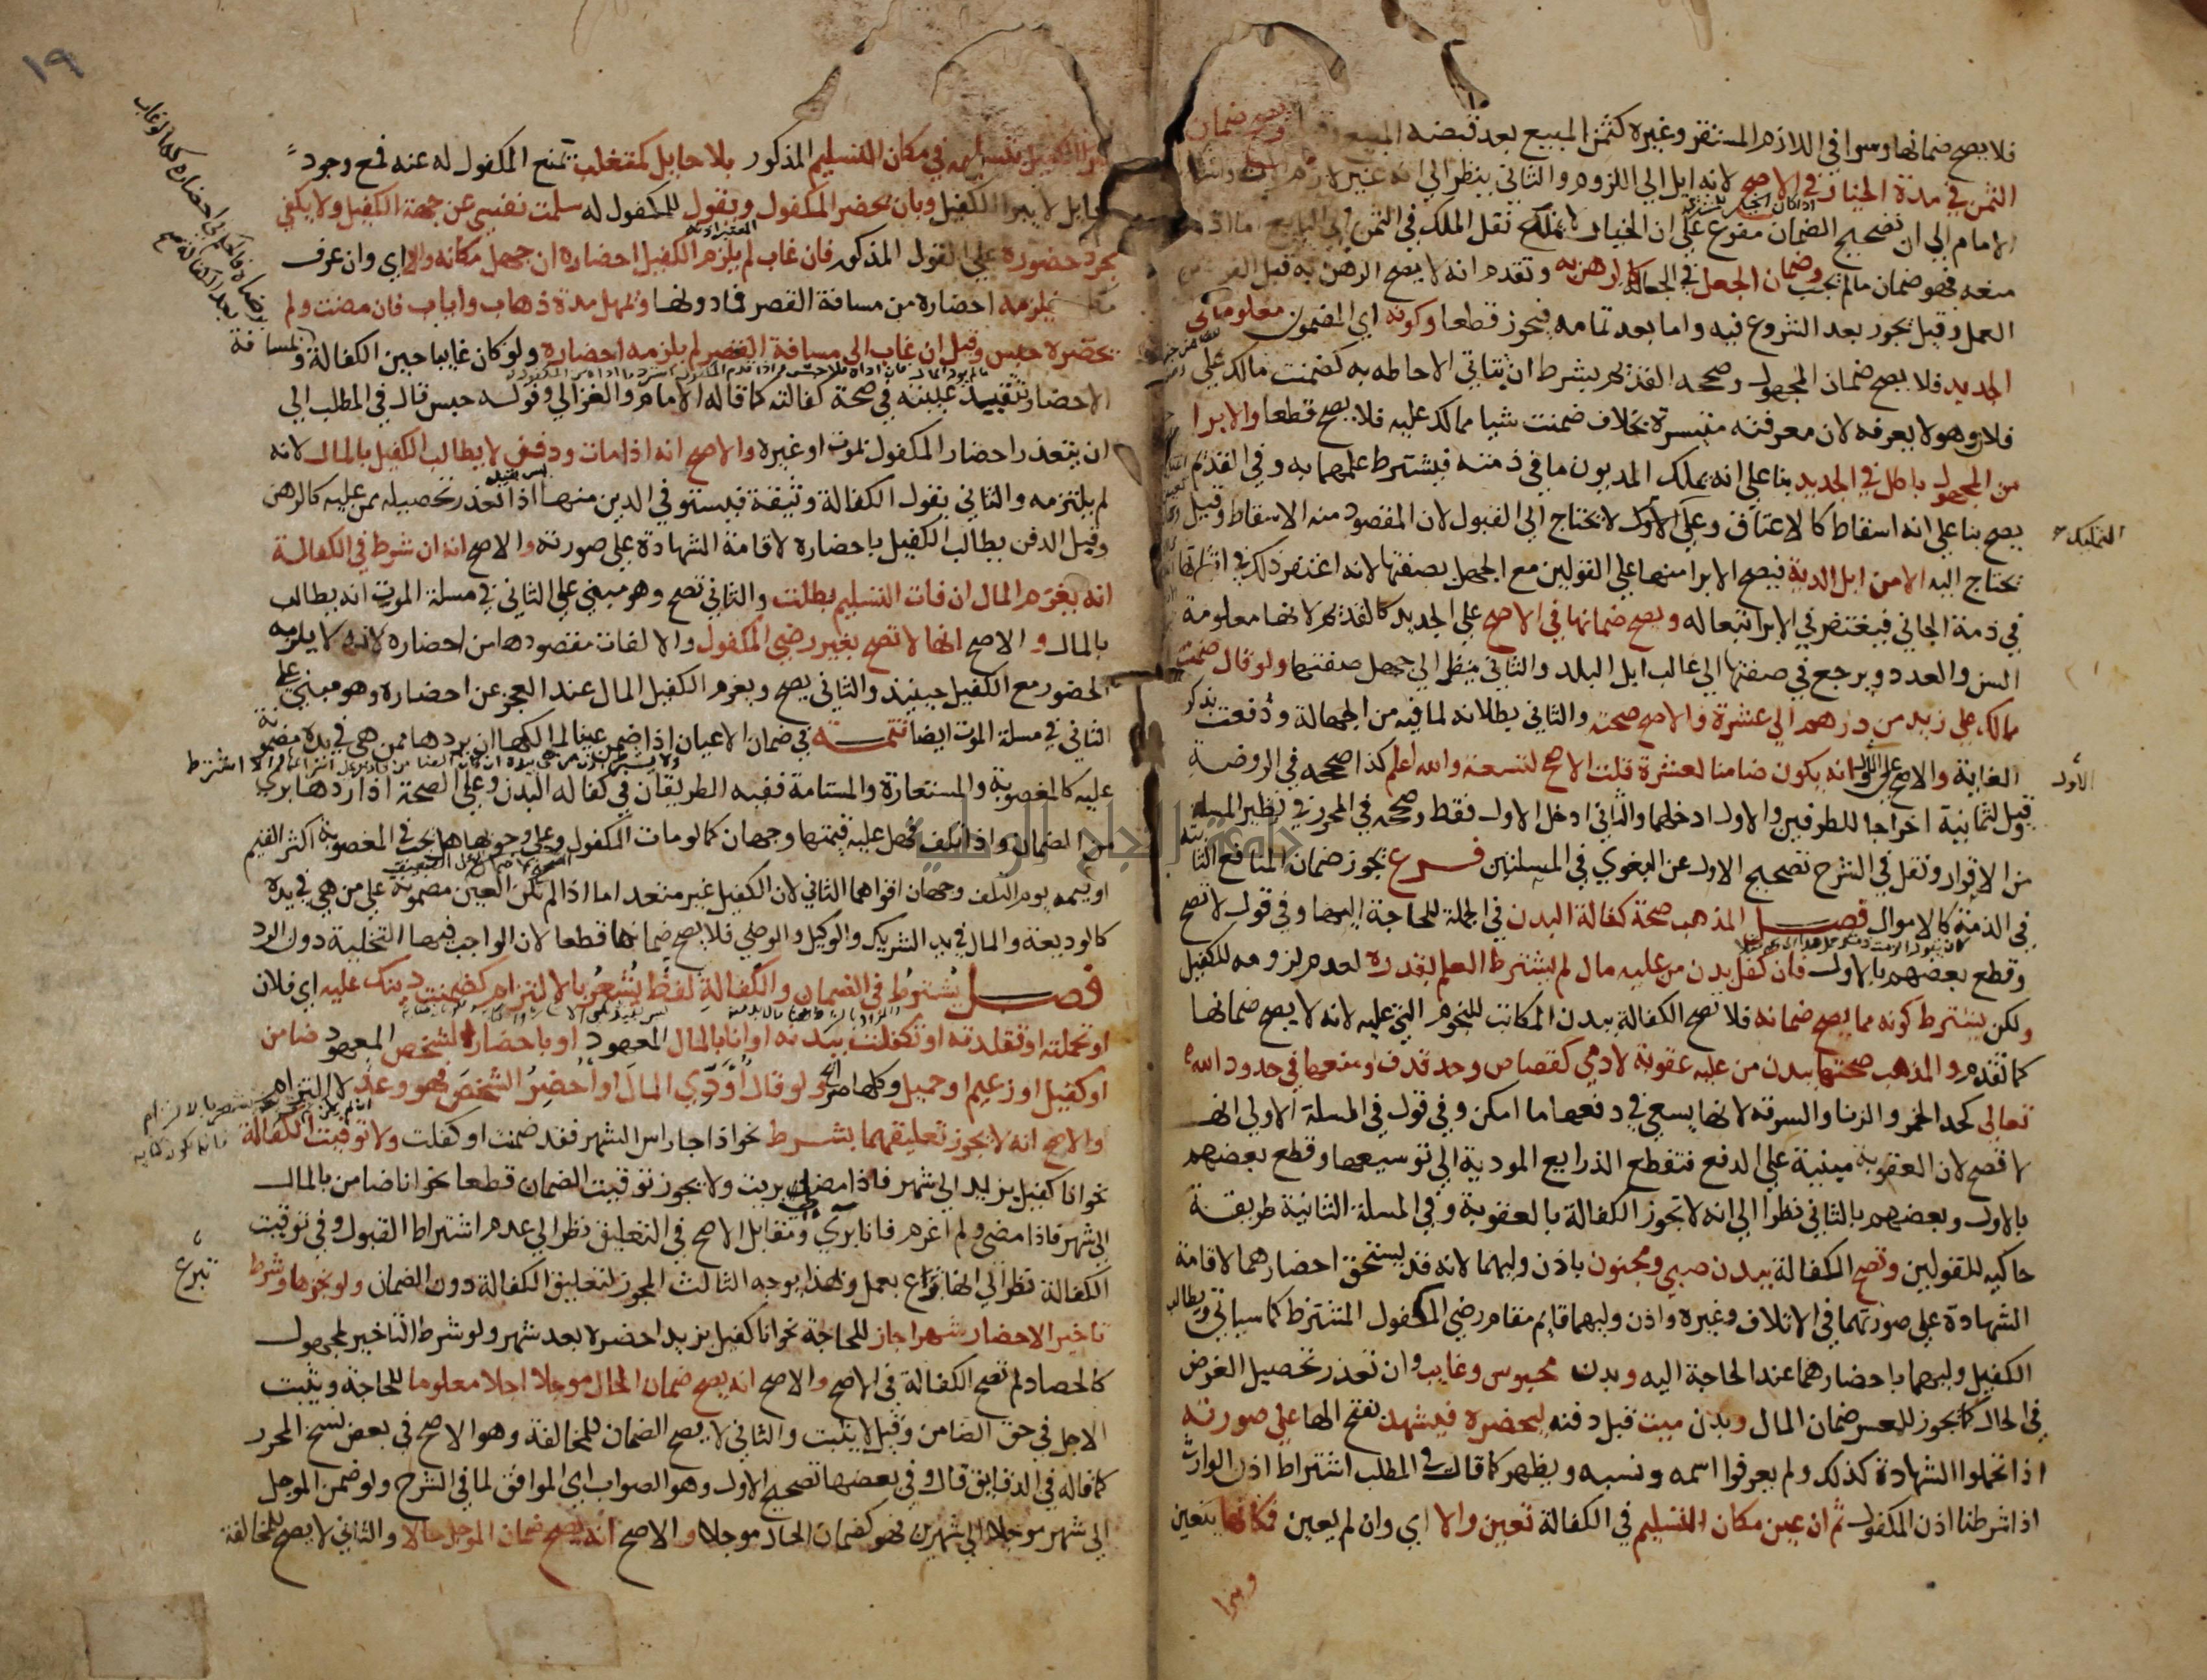 فلا يصح ضمانها وسوا في اللازم المستقر وغيره كثمن المبيع بعد قبضه المبيع ويصح ضمان
الثمن في مدة الخيار في الاصح لانه ايل الي اللزوم والثاني ينظر الي انه غير لازم
الامام الي ان تصحيح الضمان مفرع علي ان الخيار لا يمنع نقل الملك في الثمن الي البايع اما اذا
منعه فهو ضمان ما لم يجب وضمان الجعل في الجعالة كالرهن به وتقدم انه لا يصح الرهن به قبل الفراغ من
العمل وقيل يجوز بعد الشروع فيه واما بعد تمامه فيجوز قطعا وكونه اي المضمون معلوما في
الجديد فلا يصح ضمان المجهول وصححه القديم بشرط ان تتاتي الاحاطه به كضمنت مالك علي
فلان وهو لا يعرفه لان معرفته متيسرة بخلاف ضمنت شيا مما لك عليه فلا يصح قطعا والابرا
من المجهول باطل في الجديد بنا علي انه يملك المديون ما في ذمته فيشترط علمهما به وفي القديم
يصح بنا علي انه اسقاط كالاعتاق وعلي الاول لا يحتاج الي القبول لان المقصود منه الاسقاط وقيل
التمليك
يحتاج اليه الا من ابل الدية فيصح الابرا منها علي القولين مع الجهل بصفتها لانه اغتفر ذلك في اثباتها
في ذمة الجاني فيغتفر في الابرا تبعا له ويصح ضمانها في الاصح علي الجديد كالقديم لانها معلومة
السن والعدد ويرجع في صفتها الي غالب ابل البلد والثاني ينظر الي جهل صفتها ولو قال ضمنت
مالك علي زيد من درهم الي عشرة فالاصح صحته والثاني بطلانه لما فيه من الجهالة ودفعت بذكر
الغاية والاصح علي الاول انه يكون ضامنا لعشرة قلت الاصح لتسعة والله اعلم كذا صححه في الروضة
الأول
وقيل لثمانية اخراجا للطرفين والاول ادخلهما والثاني ادخل الاول فقط وصححه في المحرر في نظير المسلة
من الاقرار ونقل في الشرح تصحيح الاول عن البغوي في المسلتين فرع يجوز ضمان المنافع الثابتة
في الذمة كالاموال فصل المذهب صحة كفالة البدن في الجملة للحاجة اليها وفي قول لا تصح
وقطع بعضهم بالاول فان كفل بدن من عليه مال لم يشترط العلم بقدره لعدم لزومه للكفيل
ولكن يشترط كونه مما يصح ضمانه فلا تصح الكفالة ببدن المكاتب للنجوم التي عليه لانه لا يصح ضمانها
كما تقدم والمذهب صحتها ببدن من عليه عقوبة لادمي كقصاص وحد قذف ومنعها في حدود الله
تعالي كحد الخمر والزنا والسرقة لانها يسعي في دفعها ما امكن وفي قول في المسلة الاولي انها
لا تصح لان العقوبة مبنية علي الدفع فتقطع الذرايع المودية الي توسيعها وقطع بعضهم
بالاول وبعضهم بالثاني نظرا الي انه لا تجوز الكفالة بالعقوبة وفي المسلة الثانية طريقة
حاكية للقولين وتصح الكفالة ببدن صبي ومجنون باذن وليهما لانه قد يستحق احضارهما لاقامة
الشهادة علي صورتهما في الاتلاف وغيره واذن وليهما قايم مقام رضي المكفول المشترط كما سياتي ويطالب
الكفيل وليهما باحضارهما عند الحاجة اليه وبدن محبوس وغايب وان تعذر تحصيل الغرض
في الحال كما يجوز للمعسر ضمان المال وبدن ميت قبل دفنه ليحضره فيشهد بفتح الها علي صورته
اذا تحملوا الشهادة كذلك ولم يعرفوا اسمه ونسبه ويظهر كما قال في المطلب اشتراط اذن الوارث
اذا شرطنا اذن المكفول ثم ان عين مكان التسليم في الكفالة تعين والا اي وان لم يعين فكانها يتعين
ويبرا
١٩
الكفيل بتسليمه في مكان التسليم المذكور بلا حايل كمتغلب يمنع المكفول له عنه فمع وجود
حايل لا يبرا الكفيل وبان يحضر المكفول ويقول للمكفول له سلمت نفسي عن جهة الكفيل ولا يكفي
مجرد حضوره علي القول المذكور فان غاب لم يلزم الكفيل احضاره ان جهل مكانه والا اي وان عرف
فيلزمه احضاره من مسافة القصر فما دونها ويمهل مدة ذهاب واياب فان مضت ولم
يحضره حبس وقيل ان غاب الي مسافة القصر لم يلزمه احضاره ولو كان غايبا حين الكفالة
الاحضار تقييد غيبته في صحة كفالته كما قاله الامام والغزالي وقوله حبس قال في المطلب الي
ان يتعذر احضار المكفول بموت او غيره والاصح انه اذا مات ودفن لا يطالب الكفيل بالمال لانه
لم يلتزمه والثاني يقول الكفالة وثيقة فيستوفي الدين منها اذا تعذر تحصيله ممن عليه كالرهن
وقبل الدفن يطالب الكفيل باحضاره لاقامة الشهادة علي صورته والاصح انه ان شرط في الكفالة
انه يغرم المال ان فات التسليم بطلت والثاني تصح وهو مبني علي الثاني في مسلة الموت انه يطالب
بالمال والاصح انها لا تصح بغير رضي المكفول والا لفات مقصودها من احضاره لانه لا يلزمه
الحضور مع الكفيل حينيذ والثاني يصح ويغرم الكفيل المال عند العجز عن احضاره وهو مبني علي
الثاني في مسلة الموت ايضا تتمة في ضمان الاعيان اذا ضمن عينا لمالكها ان يردها ممن هي في يده مضمونة
عليه كالمغصوبة والمستعارة والمستامة ففيه الطريقان في كفالة البدن وعلي الصحة اذا ردها بري
من الضمان واذا تلفت فهل عليه قيمتها وجهان كما لو مات المكفول وعلي وجوبها هل يجب في المغصوبة اكثر القيم
او قيمة يوم التلف وجهان اقواهما الثاني لان الكفيل غير متعد اما اذا لم تكن العين مضمونة علي من هي في يده
كالوديعة والمال في يد الشريك والوكيل والوصي فلا يصح ضمانها قطعا لان الواجب فيها التخلية دون الرد
فصل يشترط في الضمان والكفالة لفظ يشعر بالالتزام كضمنت دينك عليه اي فلان
او تحملته او تقلدته او تكفلت ببدنه او انا بالمال المعهود او باحضار الشخص المعهود ضامن
او كفيل او زعيم او حميل وكلها صرايح ولو قال أؤدي المال او أحضر الشخص فهو وعد لا التزام
والاصح انه لا يجوز تعليقهما بشرط نحو اذا جا راس الشهر فقد ضمنت او كفلت ولا توقيت الكفالة
نحو انا كفيل بزيد الي شهر فاذا مضي بريت ولا يجوز توقيت الضمان قطعا نحو انا ضامن بالمال
الي شهر فاذا مضي ولم اغرم فانا بري ومقابل الاصح في التعليق نظر الي عدم اشتراط القبول وفي توقيت
الكفالة نظر الي انها تبرع بعمل ولهذا يوجه الثالث المجوز لتعليق الكفالة دون الضمان ولو نجزها وشرط
تبرع
تاخير الاحضار شهرا جاز للحاجة نحو انا كفيل بزيد احضره بعد شهر ولو شرط التاخير لمجهول
كالحصاد لم تصح الكفالة في الاصح والاصح انه يصح ضمان الحال موجلا اجلا معلوما للحاجة ويثبت
الاجل في حق الضامن وقيل لا يثبت والثاني لا يصح الضمان للمخالفة وهو الاصح في بعض نسخ المحرر
كما قاله في الدقايق قال وفي بعضها تصحيح الاول وهو الصواب اي الموافق لما في الشرح ولو ضمن الموجل
الي شهر موجلا الي شهرين فهو كضمان الحال موجلا والاصح انه يصح ضمان الموجل حالا والثاني لا يصح للمخالفة
جامعة النجاح الوطنية